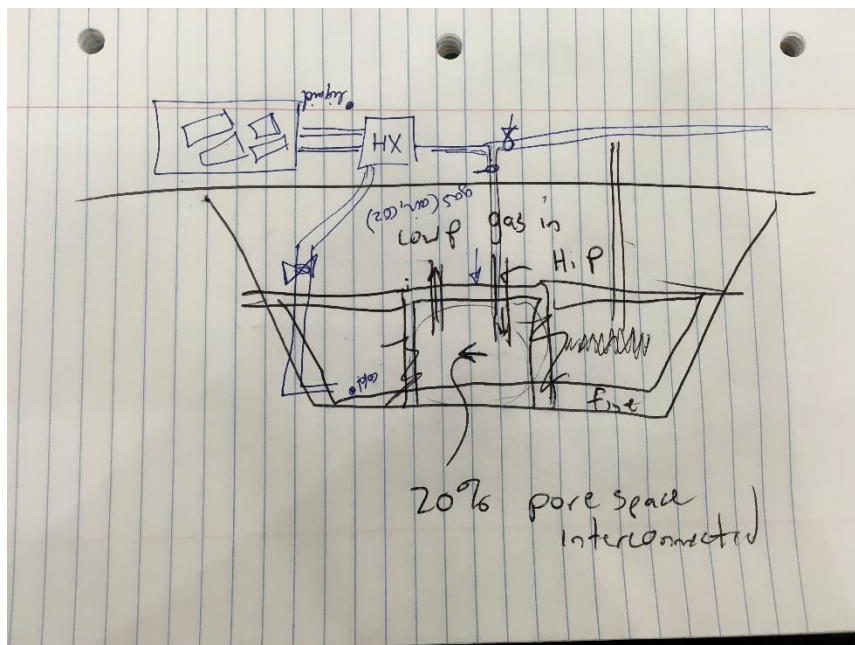 liquid
HX
gas (air, CO2)
low P
gas in
Hi P
cold
fine
20% pore space
interconnected